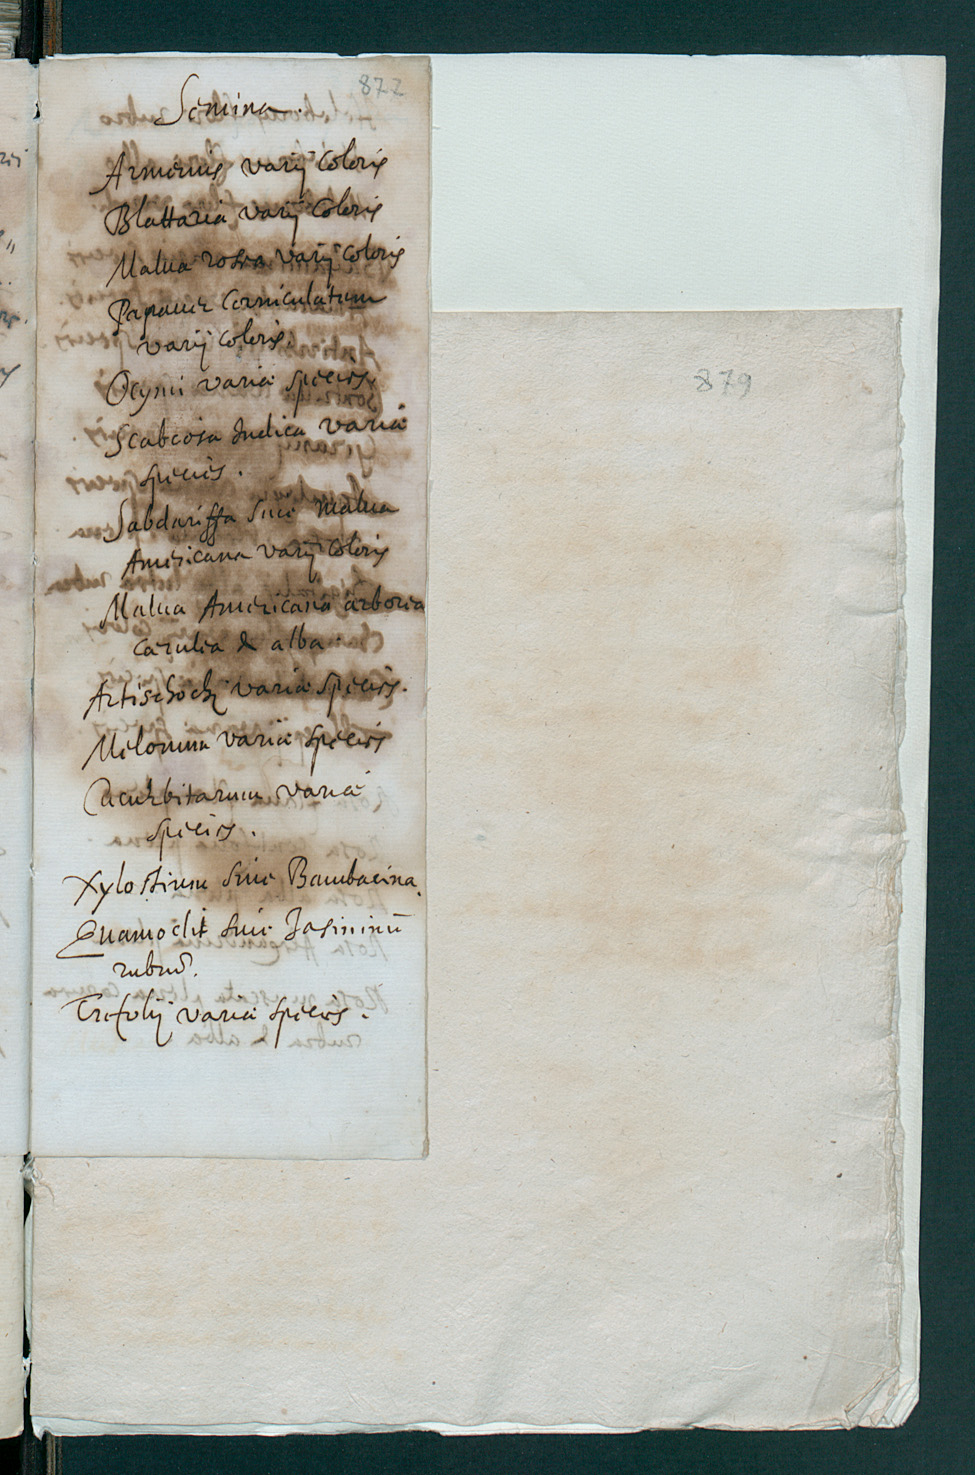 872
Semina.
Armeriis varij Coloris
Blattaria varij Coloris
Malua rosea varij coloris
Papauer Corniculatum
varij coloris.
Ocymi varia species.
Scabiosa Indica varia
species.
Sabdariffa siue malua
Americana varij coloris
Malua Americana arborea
Cærulea & alba.
Artischocki varia species.
Melonum varia species
Cucurbitarum varia
species.
Xylostium siue Bambacina.
Quamoclit siue Jasminū
rubrū.
Trifolij varia species.
879